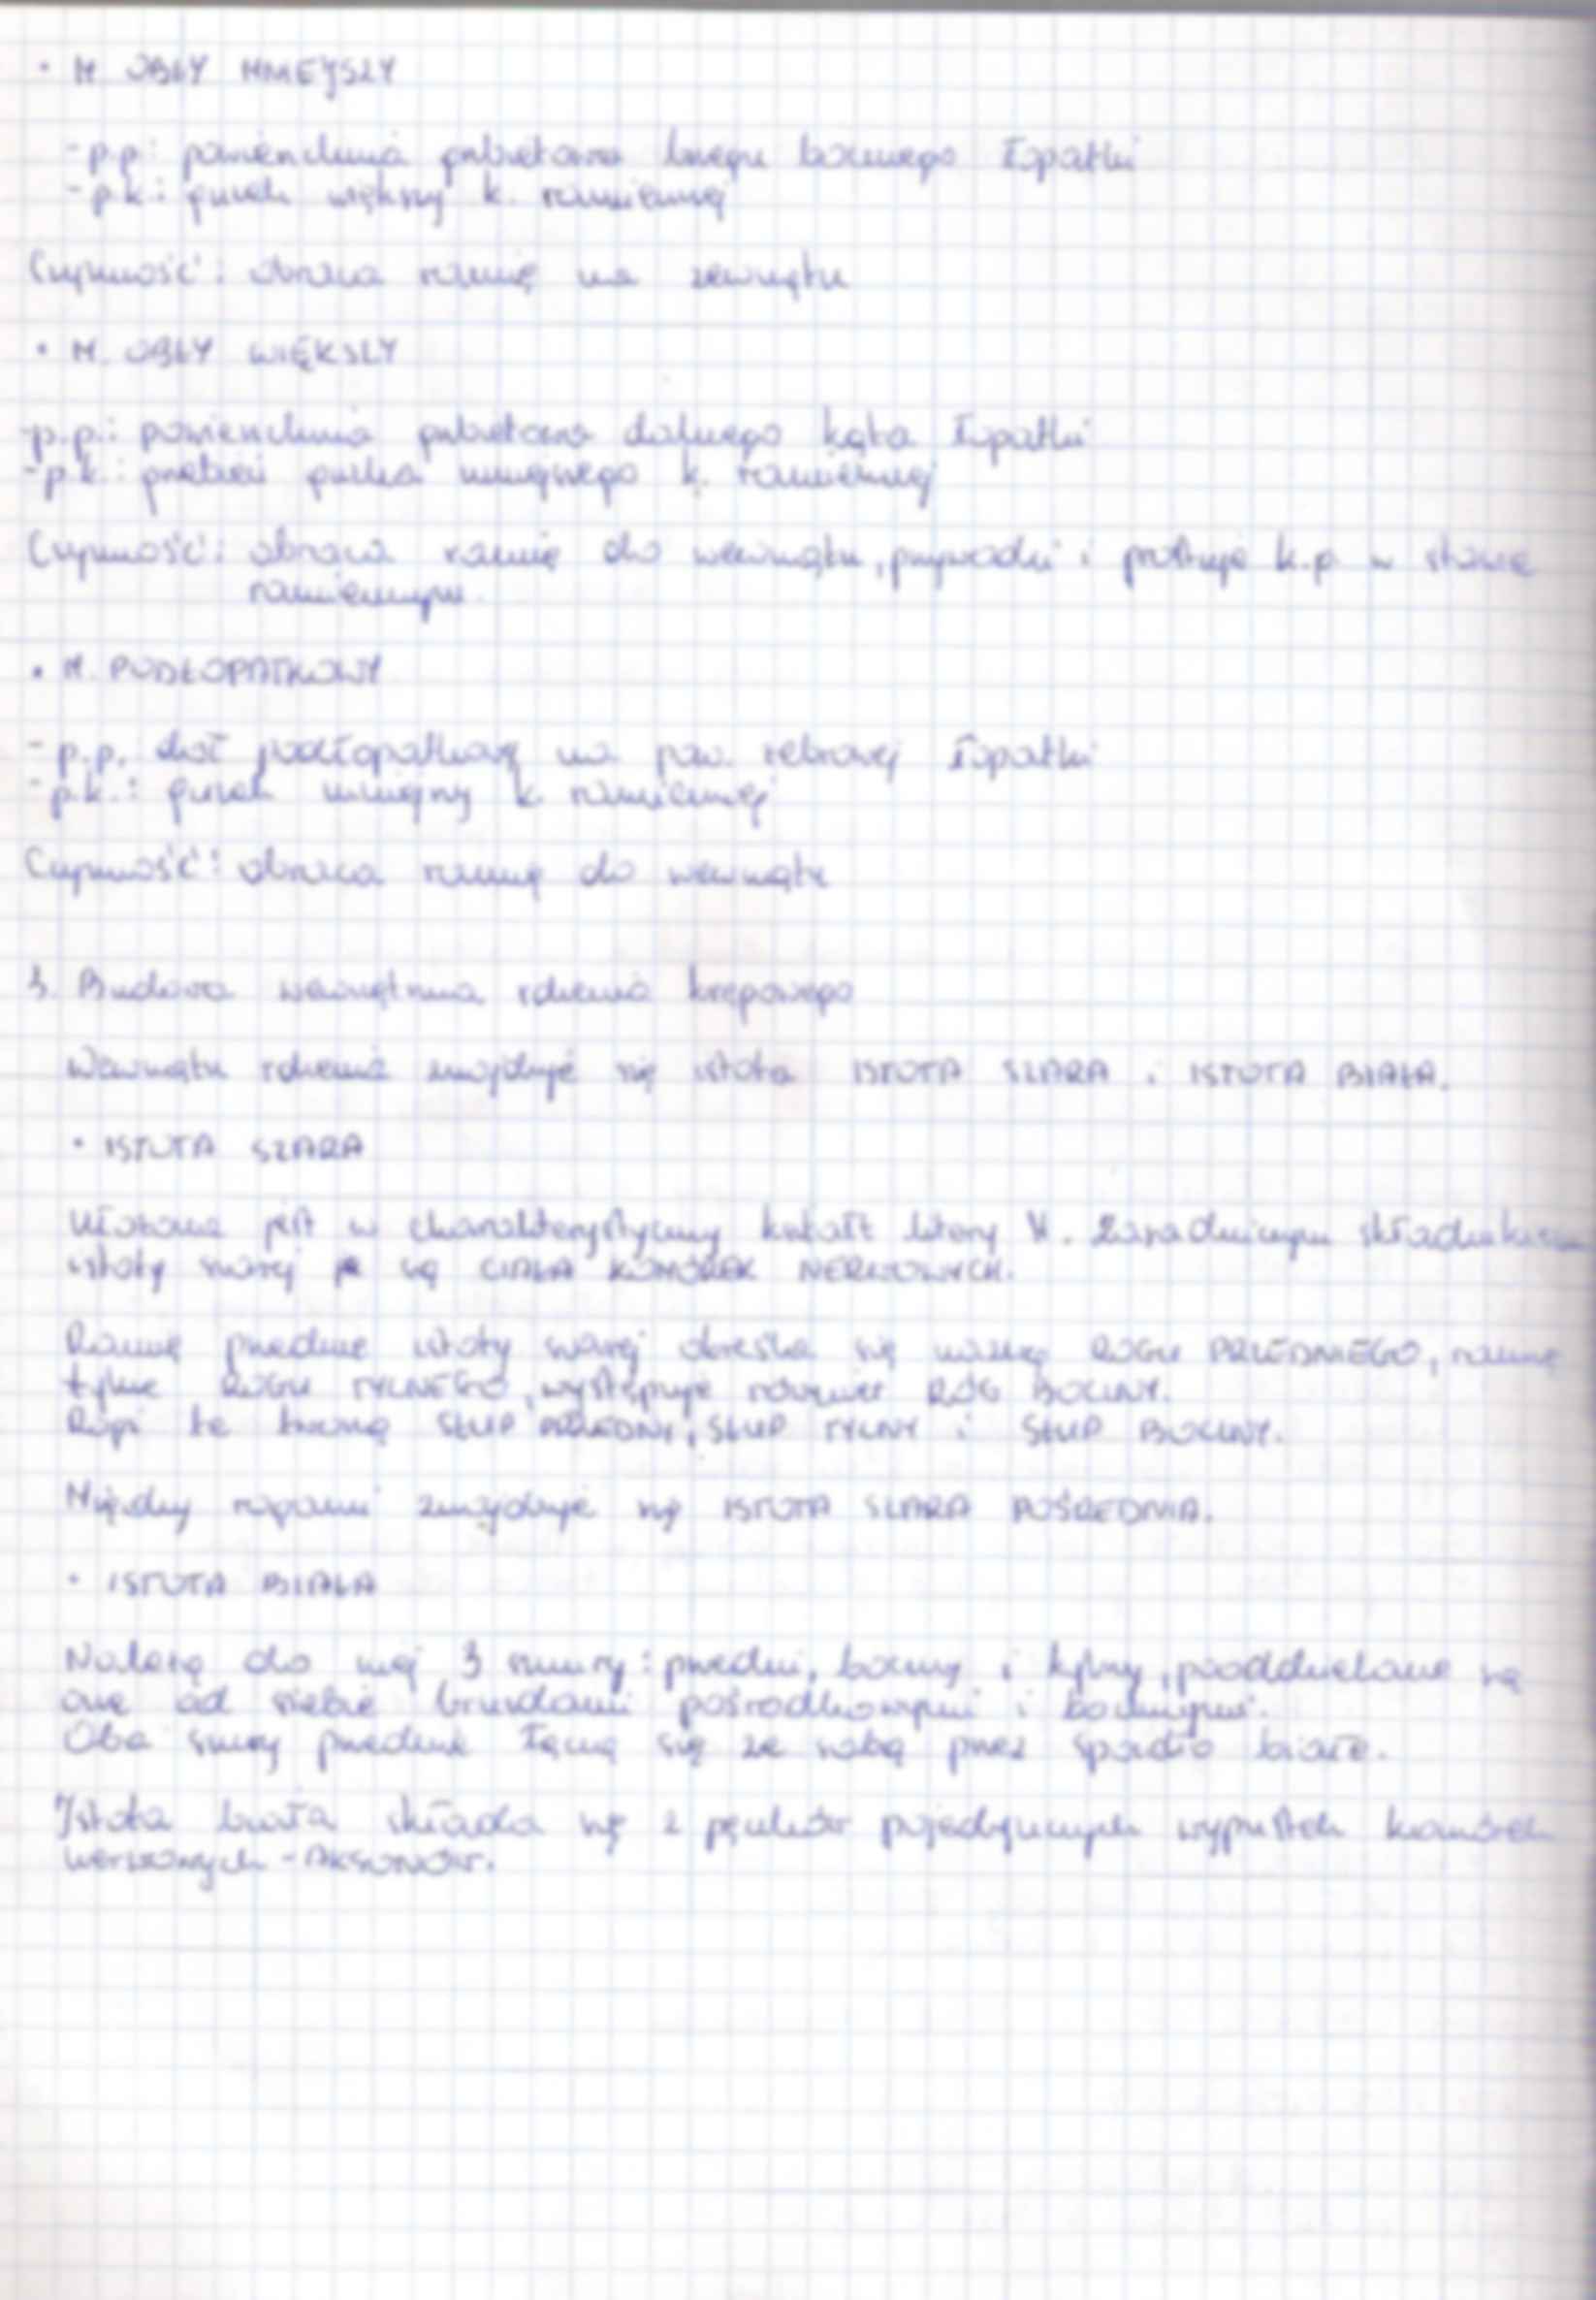 • M. OBŁY MNIEJSZY
- p.p.: powierzchnia grzbietowa brzegu bocznego łopatki
- p.k.: guzek większy k. ramiennej
Czynność: obraca ramię na zewnątrz
• M. OBŁY WIĘKSZY
- p.p.: powierzchnia grzbietowa dolnego kąta łopatki
- p.k.: grzebień guzka mniejszego k. ramiennej
Czynność: obraca ramię do wewnątrz, przywodzi i prostuje k.p. w stawie
ramiennym.
• M. PODŁOPATKOWY
- p.p. dół podłopatkowy na pow. żebrowej łopatki
- p.k.: guzek mniejszy k. ramiennej
Czynność: obraca ramię do wewnątrz
3. Budowa wewnętrzna rdzenia kręgowego
Wewnątrz rdzenia znajduje się istota ISTOTA SZARA i ISTOTA BIAŁA.
• ISTOTA SZARA
Ułożona jest w charakterystyczny kształt litery H. Zasadniczym składnikiem
istoty szarej są CIAŁA KOMÓREK NERWOWYCH.
Ramię przednie istoty szarej określa się nazwą ROGU PRZEDNIEGO, ramię
tylne ROGU TYLNEGO, występuje również RÓG BOCZNY.
Rogi te tworzą SŁUP PRZEDNI, SŁUP TYLNY i SŁUP BOCZNY.
Między rogami znajduje się ISTOTA SZARA POŚREDNIA.
• ISTOTA BIAŁA
Należą do niej 3 sznury: przedni, boczny i tylny, pooddzielane są
one od siebie bruzdami pośrodkowymi i bocznymi.
Oba sznury przednie łączą się ze sobą przez spoidło białe.
Istota biała składa się z pęczków pojedynczych wypustek komórek
nerwowych - AKSONÓW.